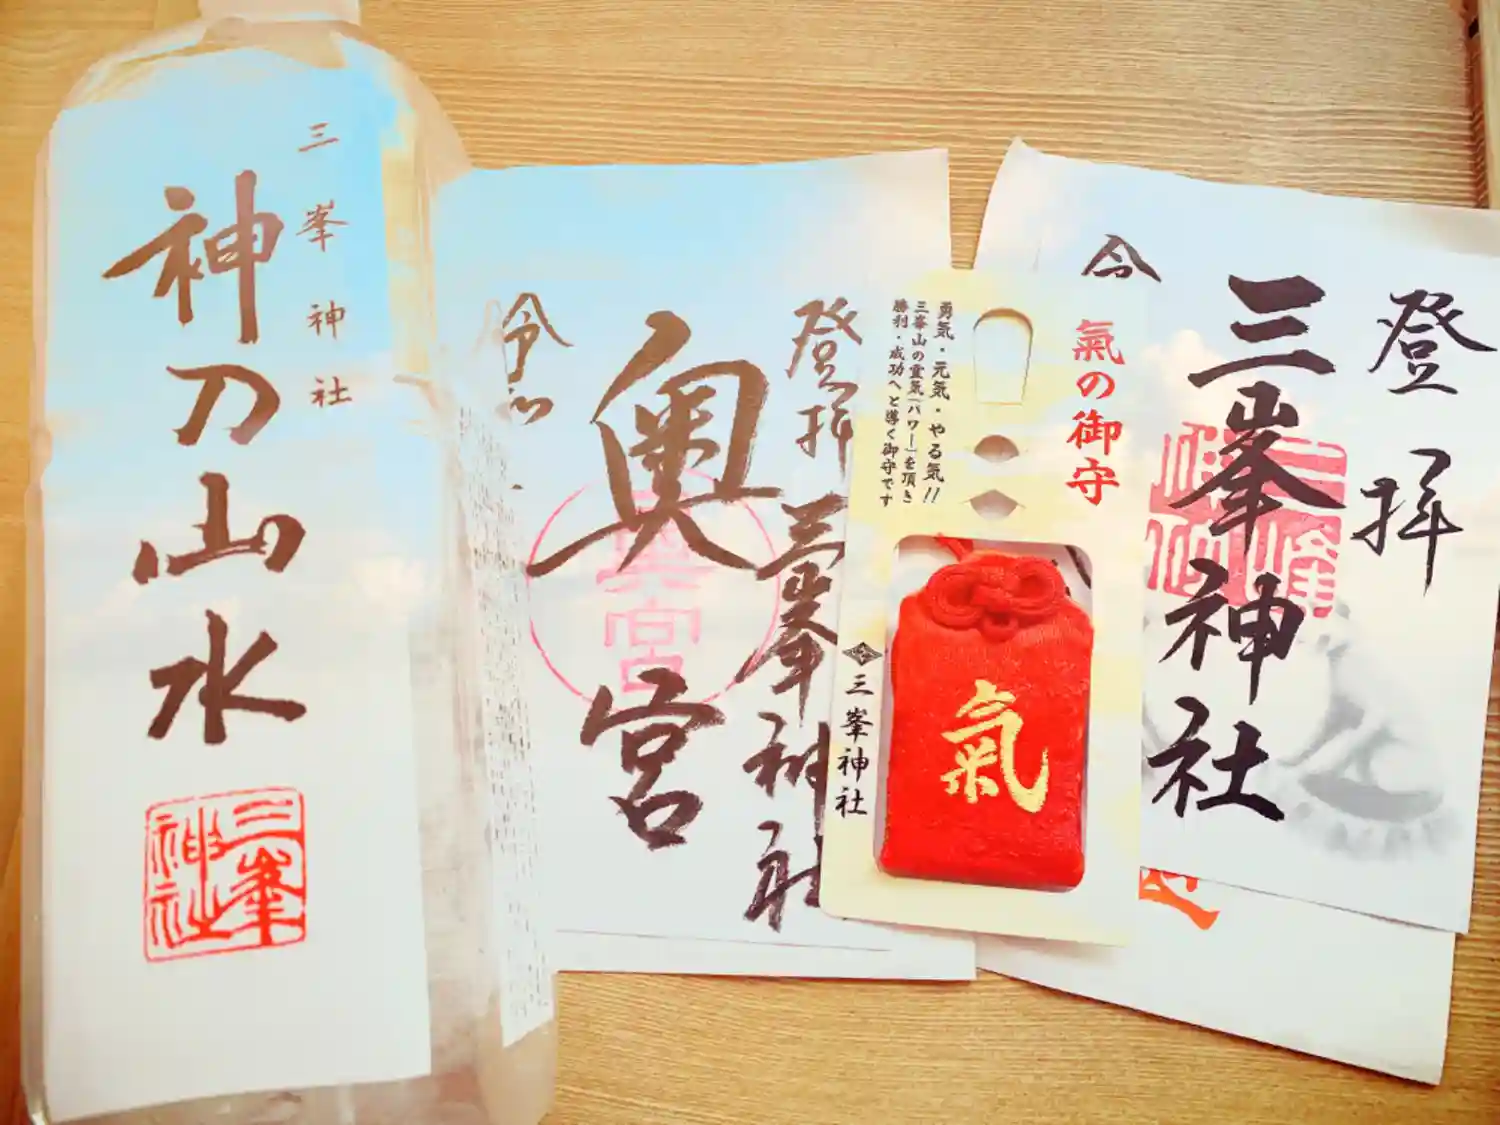 三峯神社
神乃山水
三峯
神社
登拝 三峯神社
奥宮
令和
奥宮
氣の御守
勇気・元気・やる気!!
三峯山の霊気「パワー」を頂き
勝利・成功へと導く御守です
氣
三峯神社
登拝
三峯神社
令